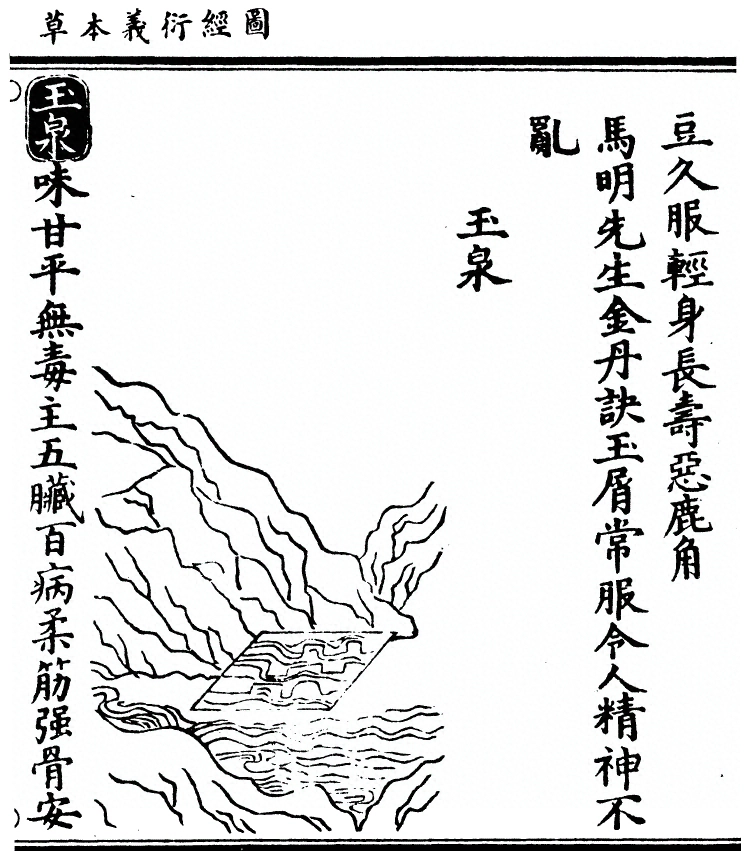 圖經衍義本草
豆久服輕身長壽惡鹿角
馬明先生金丹訣玉屑常服令人精神不
亂
玉泉
玉泉味甘平無毒主五臟百病柔筋强骨安